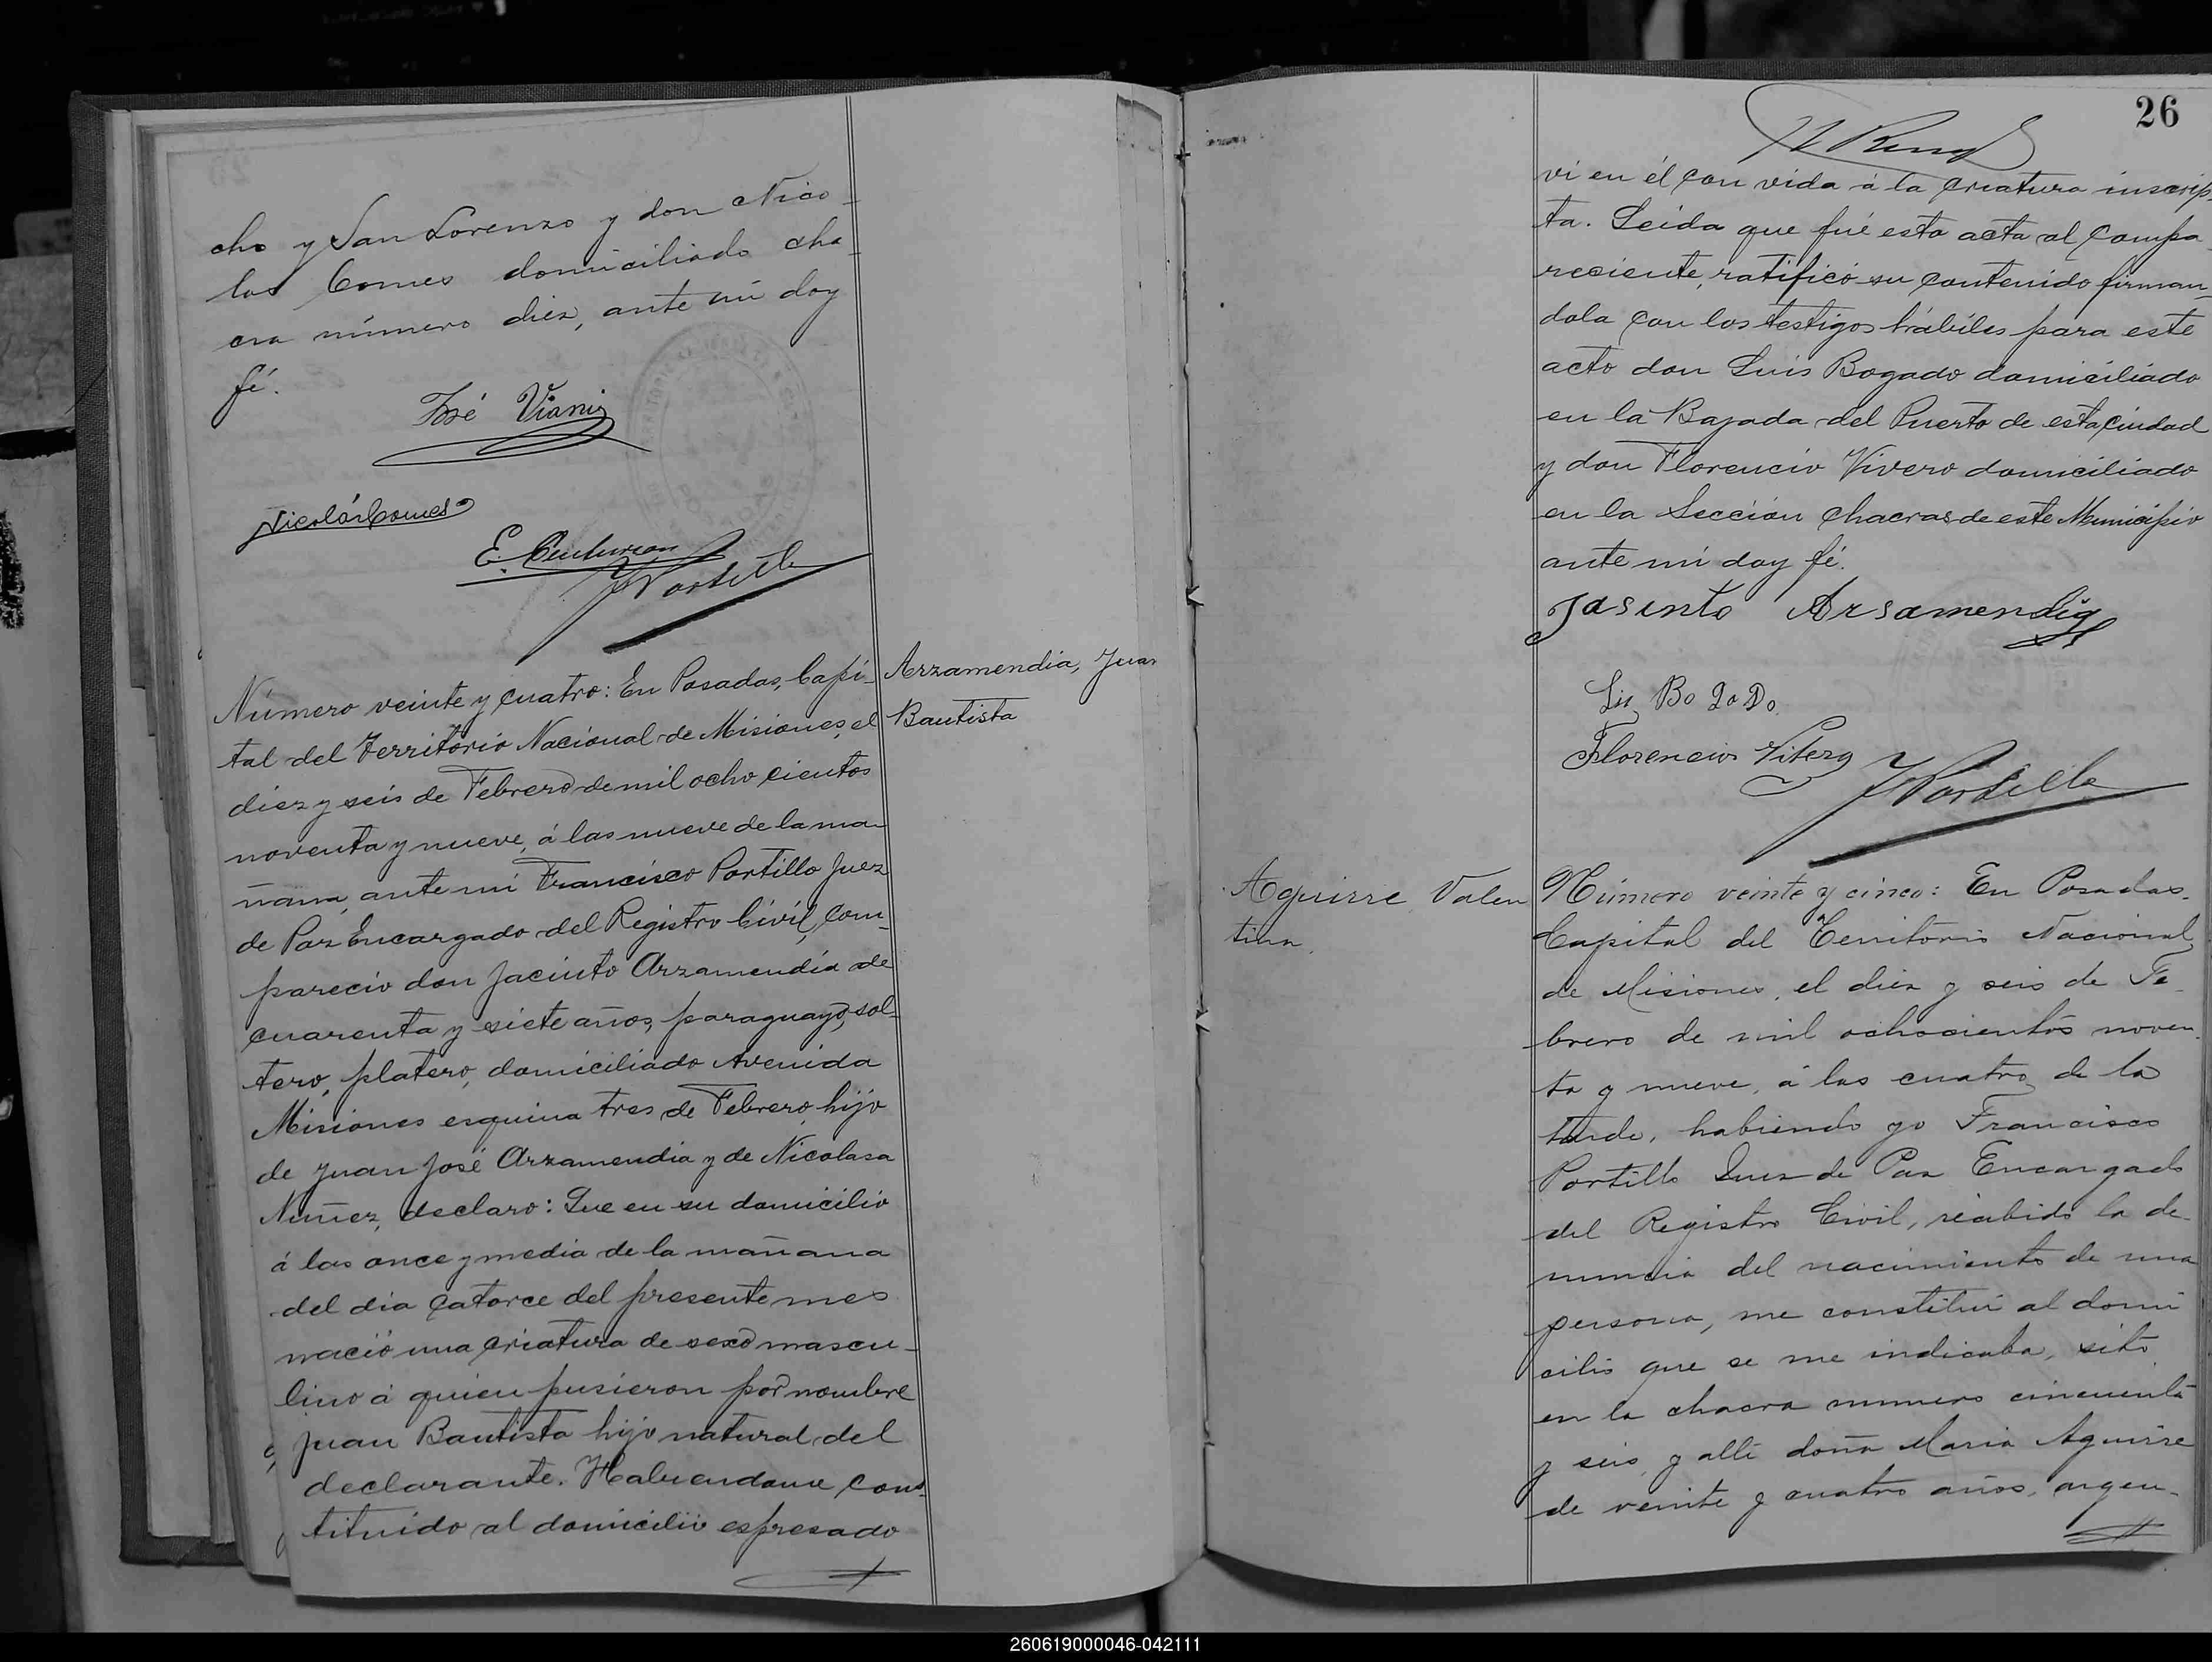 cho y San Lorenzo y don Nico-
las Comes domiciliado cha-
cra número diez, ante mi doy
fé.
José Viani
Nicolás Comes
E. Centurion
F Portillo
Arzamendia, Juan
Bautista
Número veinte y cuatro: En Posadas, Capi-
tal del Territorio Nacional de Misiones, el
diez y seis de Febrero de mil ocho cientos
noventa y nueve, á las nueve de la ma-
ñana, ante mi Francisco Portillo Juez
de Paz Encargado del Registro Civil, com-
pareció don Jacinto Arzamendia de
cuarenta y siete años, paraguayo, sol-
tero, platero, domiciliado Avenida
Misiones esquina tres de Febrero, hijo
de Juan José Arzamendia y de Nicolasa
Nuñez, declaro: Que en su domicilio
á las once y media de la mañana
del dia catorce del presente mes
nació una criatura de sexo mascu-
lino á quien pusieron por nombre
Juan Bautista hijo natural del
declarante. Habiendome cons-
tituido al domicilio espresado
26
ví en él con vida á la criatura inscrip-
ta. Leida que fué esta acta al compa-
reciente, ratificó su contenido firman-
dola con los testigos hábiles para este
acto don Luis Bogado domiciliado
en la Bajada del Puerto de esta ciudad
y don Florencio Vivero domiciliado
en la Sección Chacras de este Municipio
ante mi doy fé.
Jasinto Arsamendia
Lis Bo Do
Florencio
F Portillo
Aguirre Valen
tina
Número veinte y cinco: En Posadas.
Capital del Territorio Nacional
de Misiones, el diez y seis de Fe-
brero de mil ochocientos noven-
ta y nueve, á las cuatro de la
tarde, habiendo yo Francisco
Portillo Juez de Paz Encargado
del Registro Civil, recibido la de-
nuncia del nacimiento de una
persona, me constitui al domi
cilio que se me indicaba, sito
en la chacra numero cincuenta
y seis, y alli doña Maria Aguirre
de veinte y cuatro años, argen-
260619000046-042111